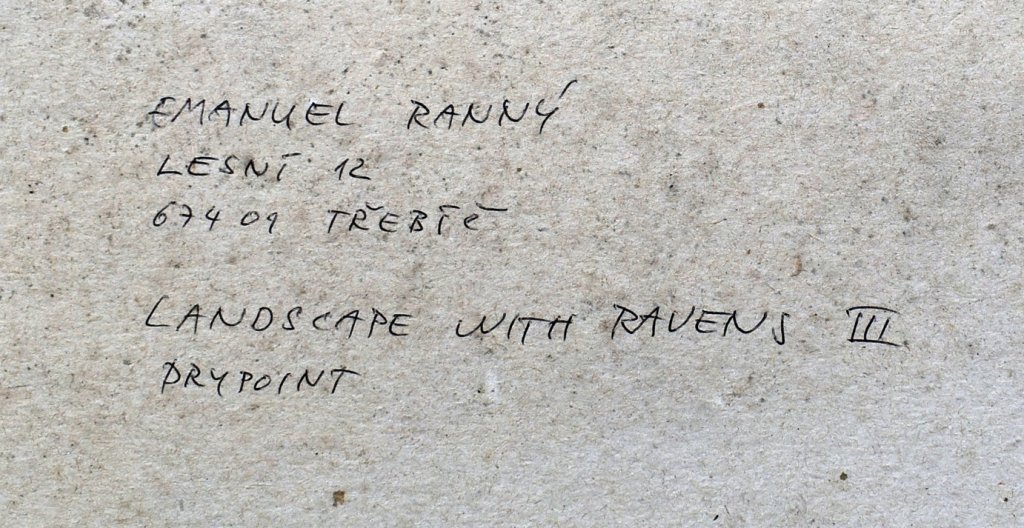 EMANUEL RANNÝ
LESNÍ 12
67401 TŘEBÍČ
LANDSCAPE WITH RAVENS III
DRYPOINT